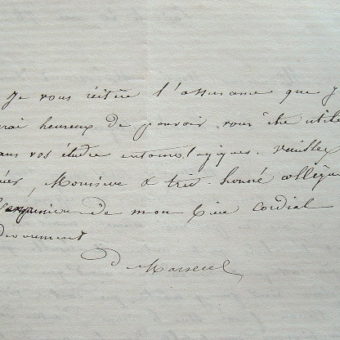 Je vous réitère l'assurance que j
rai heureux de pouvoir vous être utile
ans vos études entomologiques. veuillez
éer, Monsieur & très honoré collègue
l'expression de mon bien cordial
dévouement
D Marseul